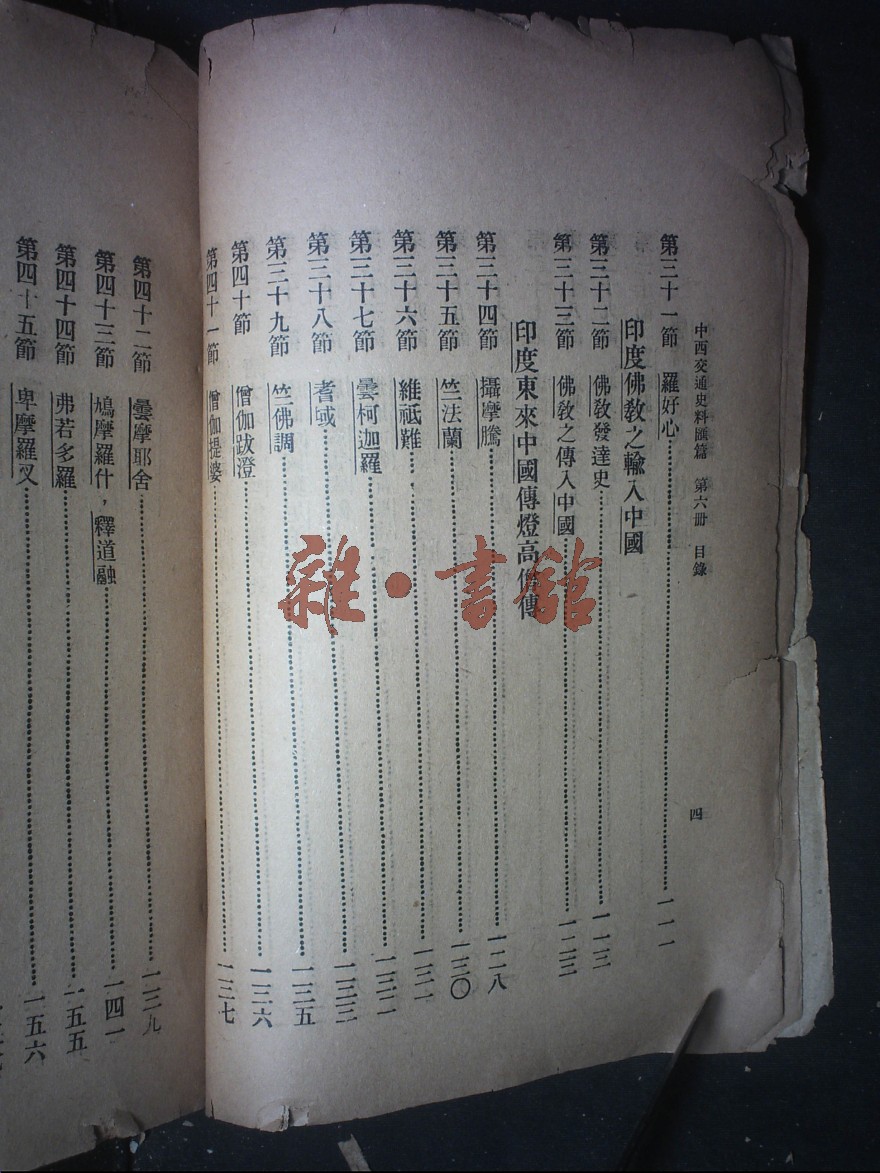 中西交通史料匯篇　第六册　目錄
四
第三十一節　羅好心……一一一
印度佛敎之輸入中國
第三十二節　佛敎發達史……一一三
第三十三節　佛敎之傳入中國……一二三
印度東來中國傳燈高僧傳
第三十四節　攝摩騰……一二八
第三十五節　竺法蘭……一三〇
第三十六節　維祗難……一三一
第三十七節　曇柯迦羅……一三二
第三十八節　耆域……一三三
第三十九節　竺佛調……一三五
第四十節　僧伽跋澄……一三六
第四十一節　僧伽提婆……一三七
第四十二節　曇摩耶舍……一三九
第四十三節　鳩摩羅什，釋道融……一四一
第四十四節　弗若多羅……一五五
第四十五節　卑摩羅叉……一五六
雜·書館